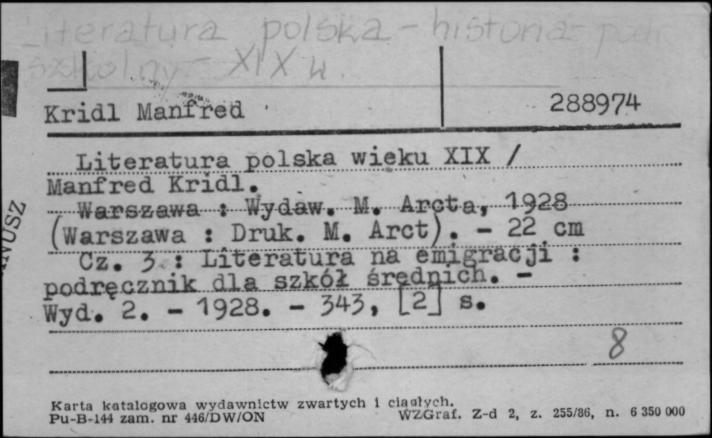 Literatura polska - historia - podr.
szkolny - XIX w.
Kridl Manfred 288974
Literatura polska wieku XIX /
Manfred Kridl.
Warszawa : Wydaw. M. Arcta, 1928
(Warszawa : Druk. M. Arct). - 22 cm
Cz. 3 : Literatura na emigracji :
podręcznik dla szkół średnich. -
Wyd. 2. - 1928. - 343, [2] s.
8
Karta katalogowa wydawnictw zwartych i ciągłych.
Pu-B-144 zam. nr 446/DW/ON WZGraf. Z-d 2, z. 255/86, n. 6 350 000